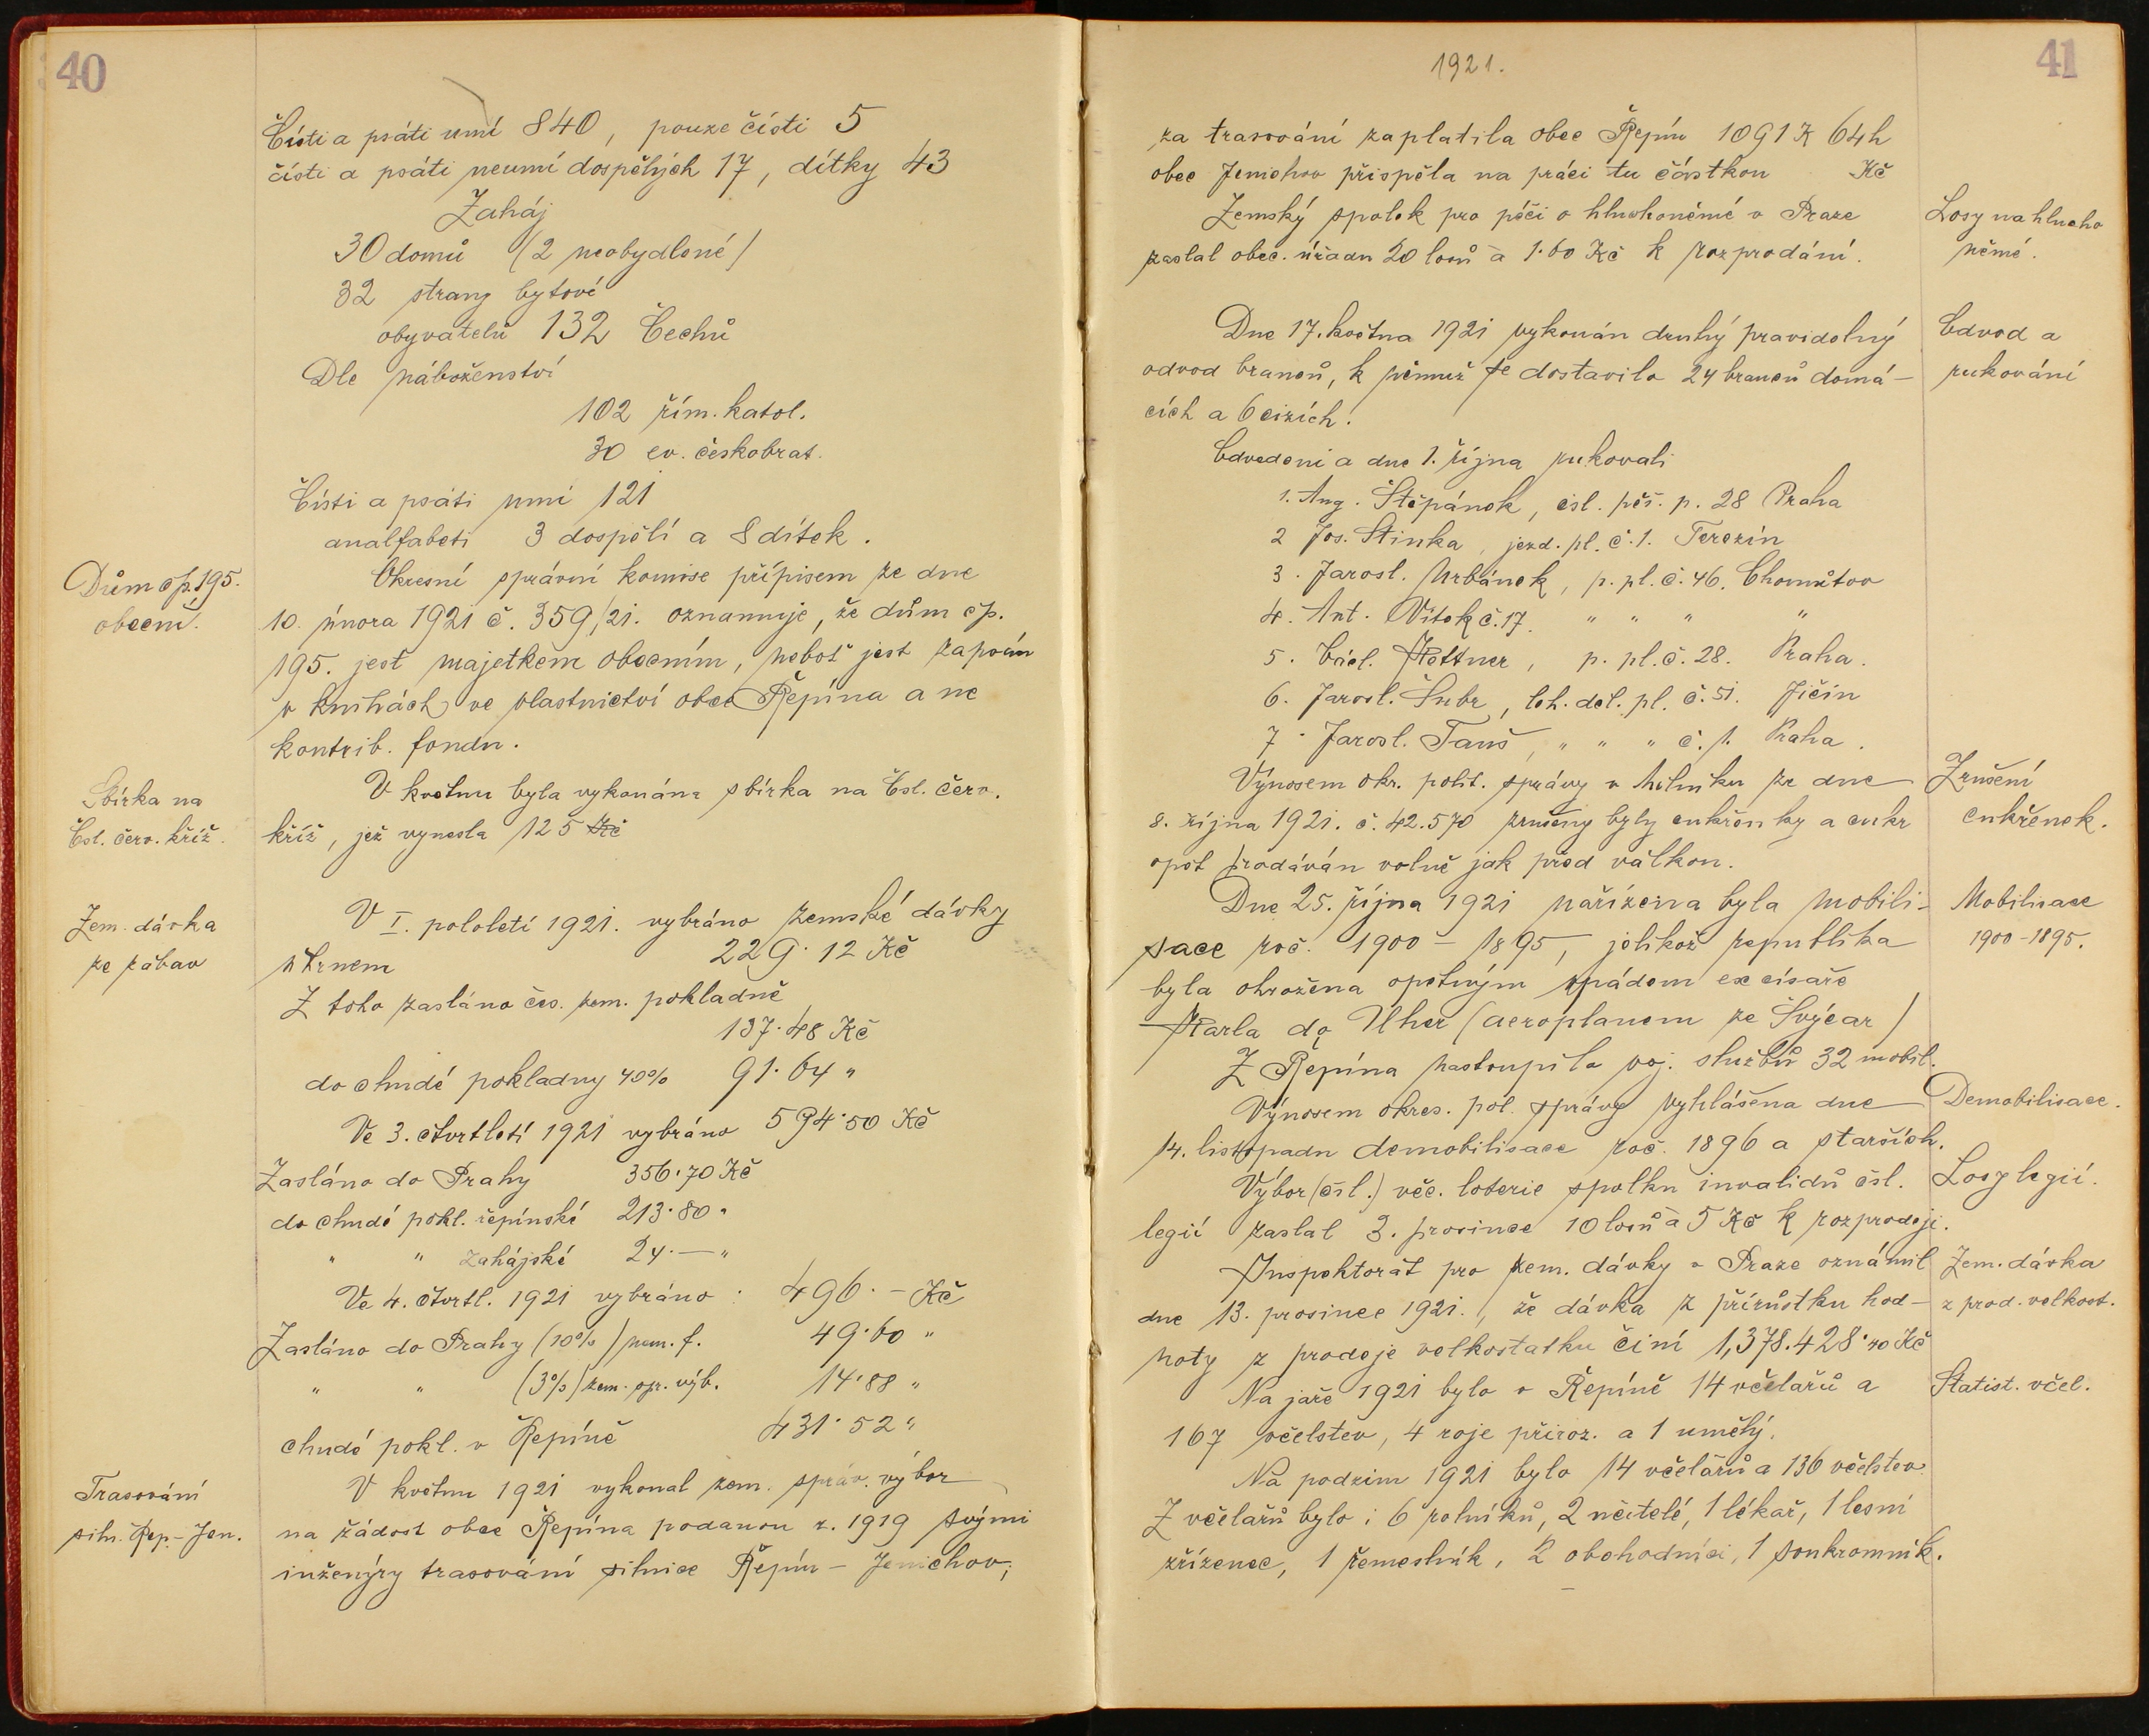 40
Čísti a psáti umí 840, pouze čísti 5
čísti a psáti neumí dospělých 17, dítky 43
Zaháj
30 domů (2 neobydlené)
32 strany bytové
obyvatelů 132 Čechů
Dle náboženství
102 řím. katol.
30 ev. českobrat.
Čísti a psáti umí 121
analfabeti 3 dospělí a 8 dítek.
Dům čp. 195.
obecní.
Okresní správní komise přípisem ze dne
10. února 1921 č. 359/21. oznamuje, že dům čp.
195. jest majetkem obecním, neboť jest zapsán
v knihách ve vlastnictví obce Řepína a ne
kontrib. fondu.
Sbírka na
Čsl. červ. kříž.
V květnu byla vykonána sbírka na Čsl. červ.
kříž, jež vynesla 125 Kč
Zem. dávka
ze zábav
V I. pololetí 1921. vybráno zemské dávky
úhrnem 229·12 Kč
Z toho zasláno čes. zem. pokladně
137·48 Kč
do chudé pokladny 40% 91·64 "
Ve 3. čtvrtletí 1921 vybráno 594·50 Kč
Zasláno do Prahy 356·70 Kč
do chudé pokl. řepínské 213·80 "
" " zahájské 24·— "
Ve 4. čtvrtl. 1921 vybráno: 496·– Kč
Zasláno do Prahy (10%) zem. f. 49·60 "
" " (3%) zem. spr. výb. 14·88 "
chudé pokl. v Řepíně 431·52 "
Trasování
siln. Řep.-Jen.
V květnu 1921 vykonal zem. správ. výbor
na žádost obce Řepína podanou r. 1919 svými
inženýry trasování silnice Řepín – Jenichov;
1921.
41
za trasování zaplatila obec Řepín 1091 K 64 h
obec Jenichov přispěla na práci tu částkou Kč
Zemský spolek pro péči o hluchoněmé v Praze
zaslal obec. úřadu 20 losů à 1·60 Kč k rozprodání.
Losy na hlucho
němé.
Dne 17. května 1921 vykonán druhý pravidelný
odvod branců, k němuž se dostavilo 24 branců domá-
cích a 6 cizích.
Odvod a
rukování
Odvedeni a dne 1. října rukovali
1. Aug. Štěpánek, čsl. pěš. p. 28 Praha
2 Jos. Stinka, jezd. pl. č. 1. Terezín
3. Jarosl. Urbánek, p. pl. č. 46. Chomutov
4. Ant. Vítek č. 17. " " " "
5. Václ. Hottner, p. pl. č. 28. Praha.
6. Jarosl. Šubr, leh. děl. pl. č. 51. Jičín
7. Jarosl. Tauš, " " " č. 1. Praha.
Výnosem okr. polit. správy v Mělníku ze dne
8. října 1921. č. 42.570 zrušeny byly cukřenky a cukr
opět prodáván volně jak před válkou.
Zrušení
cukřenek.
Dne 25. října 1921 nařízena byla mobili-
sace roč. 1900 – 1895, jelikož republika
byla ohrožena opětným vpádem excísaře
Karla do Uher (aeroplanem ze Švýcar)
Mobilisace
1900-1895.
Z Řepína nastoupilo voj. službu 32 mobil.
Výnosem okres. pol. správy vyhlášena dne
14. listopadu demobilisace roč. 1896 a starších.
Demobilisace.
Výbor (čsl.) věc. loterie spolku invalidů čsl.
legií zaslal 3. prosince 10 losů à 5 Kč k rozprodeji.
Losy legií.
Inspektorát pro zem. dávky v Praze oznámil
dne 13. prosince 1921., že dávka z přírůstku hod-
noty z prodeje velkostatku činí 1,378.428·40 Kč
Zem. dávka
z prod. velkost.
Na jaře 1921 bylo v Řepíně 14 včelařů a
167 včelstev, 4 roje přiroz. a 1 umělý.
Statist. včel.
Na podzim 1921 bylo 14 včelařů a 136 včelstev.
Z včelařů bylo: 6 rolníků, 2 učitelé, 1 lékař, 1 lesní
zřízenec, 1 řemeslník, 2 obchodníci, 1 soukromník.